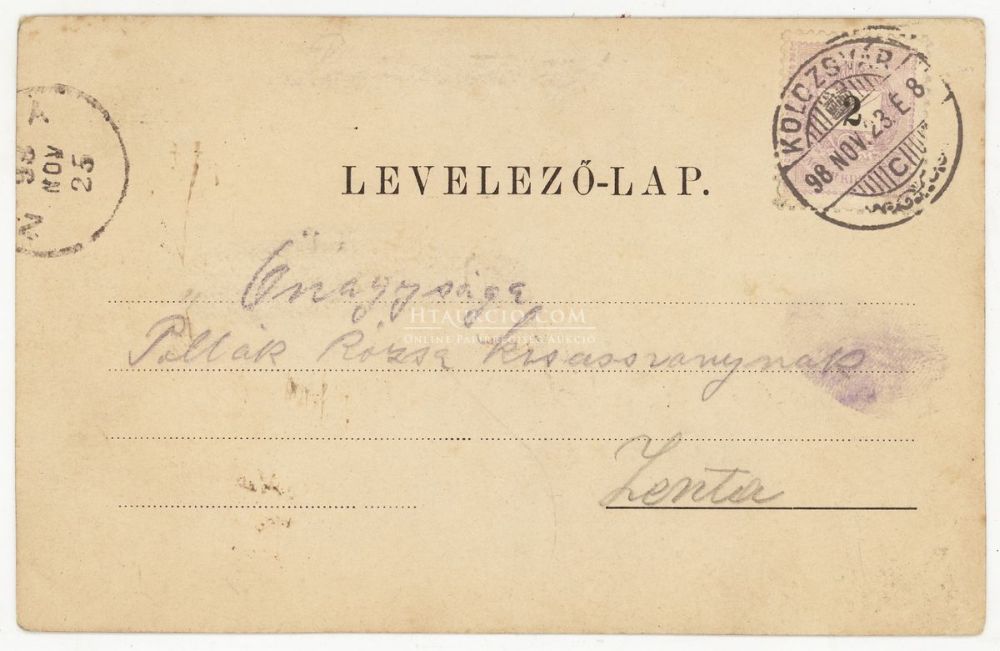 KOLOZSVÁR
98 NOV. 23. E 8
C
2
98
NOV
25
LEVELEZŐ-LAP.
Őnagysága
HTAUKCIO.COM
ONLINE PAPÍRRÉGISÉG AUKCIÓ
Pollák Rózsa kisasszonynak
Zenta